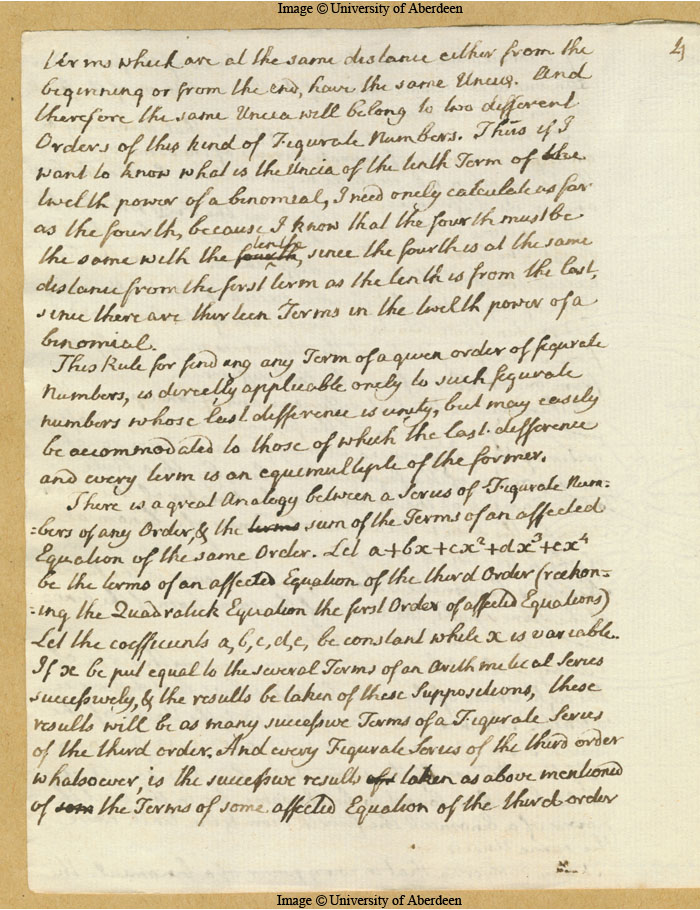 Image © University of Aberdeen
terms which are at the same distance either from the
beginning or from the end, have the same Uncia. And
therefore the same Uncia will belong to two different
Orders of this kind of Figurate Numbers. Thus if I
want to know what is the Uncia of the tenth Term of the
twelth power of a binomial, I need onely calculate as far
as the fourth, because I know that the fourth must be
tenth
the same with the fourth, since the fourth is at the same
distance from the first term as the tenth is from the last,
since there are thirteen Terms in the twelth power of a
binomial.
This Rule for finding any Term of a given order of figurate
Numbers, is directly applicable onely to such figurate
numbers whose last difference is unity, but may easily
be accommodated to those of which the last difference
and every term is an equimultiple of the former.
There is a great Analogy between a Series of Figurate Num=
=bers of any Order, & the terms sum of the Terms of an affected
Equation of the same Order. Let a+bx+cx²+dx³+ex⁴
be the terms of an affected Equation of the third Order (reckon=
=ing the Quadratick Equation the first Order of affected Equations)
Let the coefficients a, b, c, d, e, be constant while x is variable.
If x be put equal to the several Terms of an Arithmetical Series
successively, & the results be taken of these Suppositions, these
results will be as many successive Terms of a Figurate Series
of the third order. And every Figurate Series of the third order
whatsoever, is the successive results taken as above mentioned
of som the Terms of some affected Equation of the third order
Image © University of Aberdeen